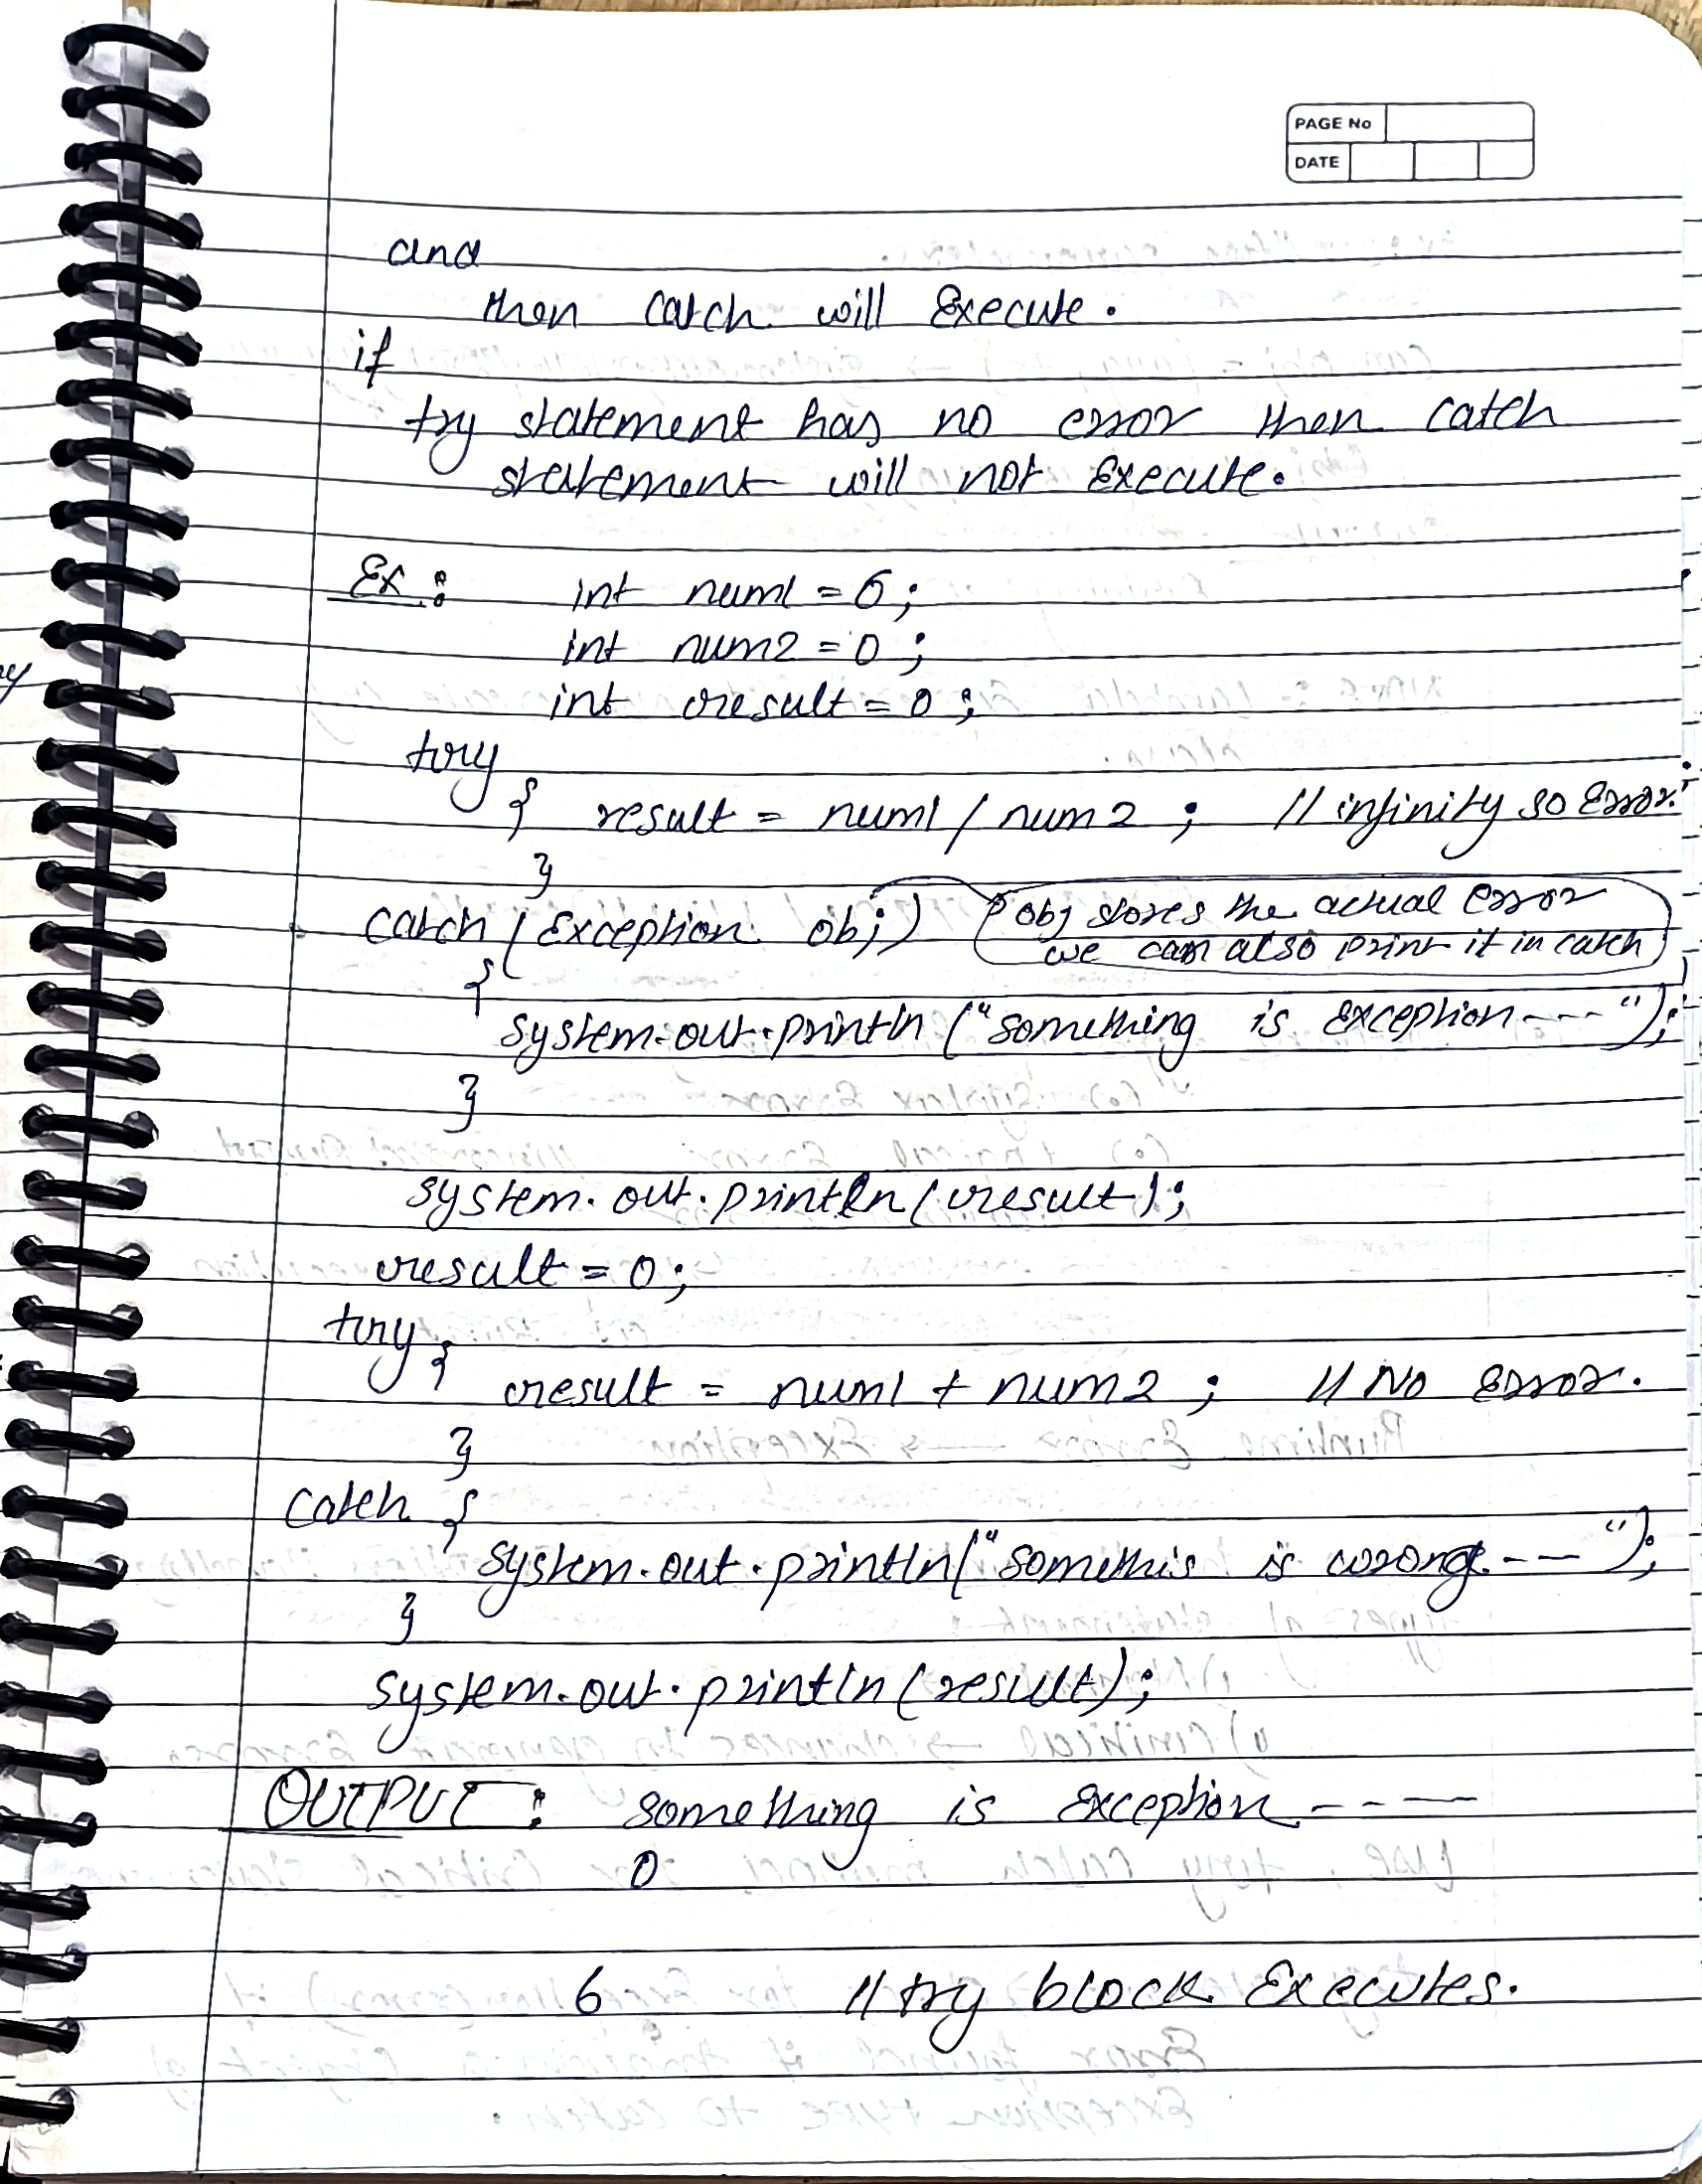 PAGE No
DATE
and
then catch will Execute.
if
try statement has no error then catch
statement will not Execute.
Ex :
int num1 = 6;
int num2 = 0;
int result = 0;
try
{ result = num1 / num2 ; // infinity so Error.
}
catch (Exception obj) obj stores the actual error
we can also print it in catch
{
system.out.println ("something is exception---");
}
system.out.println (result);
result = 0;
try {
result = num1 + num2 ; // No Error.
}
catch {
system.out.println("somethis is wrong.---");
}
system.out.println (result);
OUTPUT : something is Exception-----
0
6 // try block Executes.